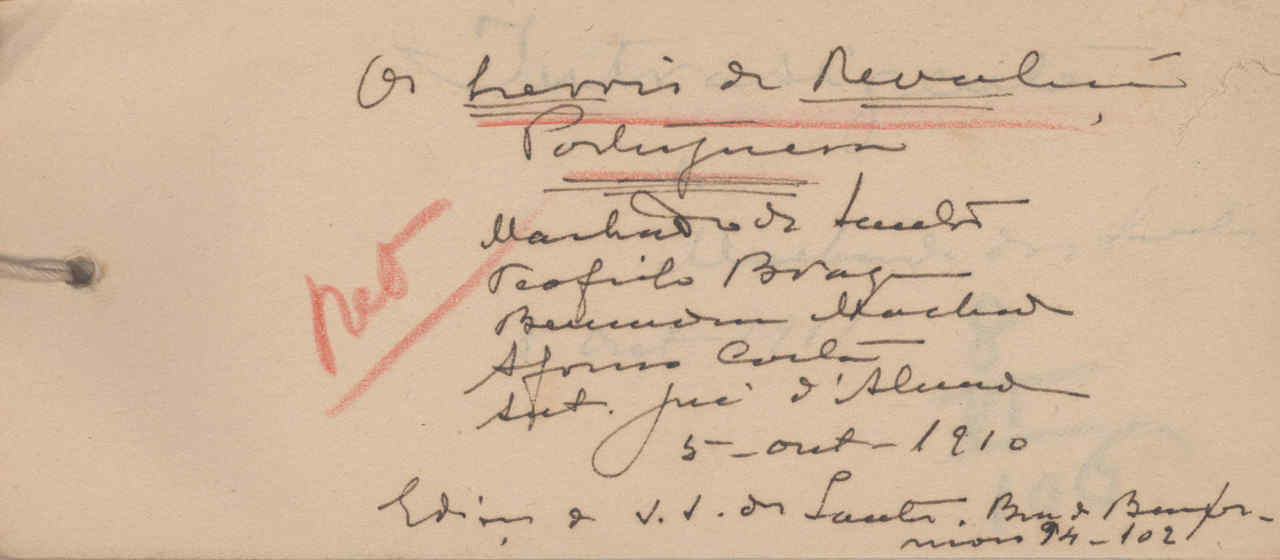 Os heroes da Revolução
Portuguesa
Machado dos Santos
Teofilo Braga
Bernardino Machado
Afonso Costa
Ant. José d'Almeida
5-out-1910
Edição de J. J. dos Santos. Rua do Benfor-
moso 94-102